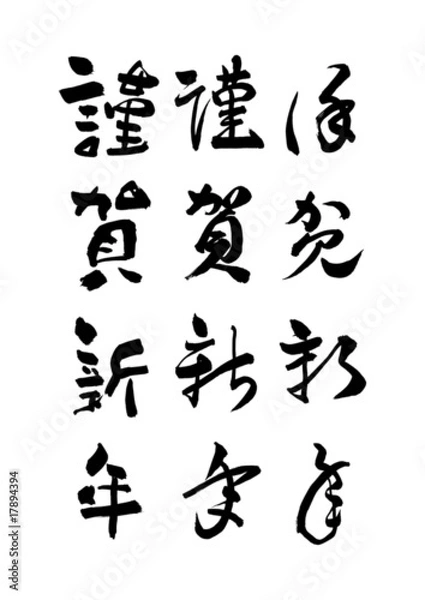 謹賀新年
謹賀新年
謹賀新年
Adobe Stock | #17894394